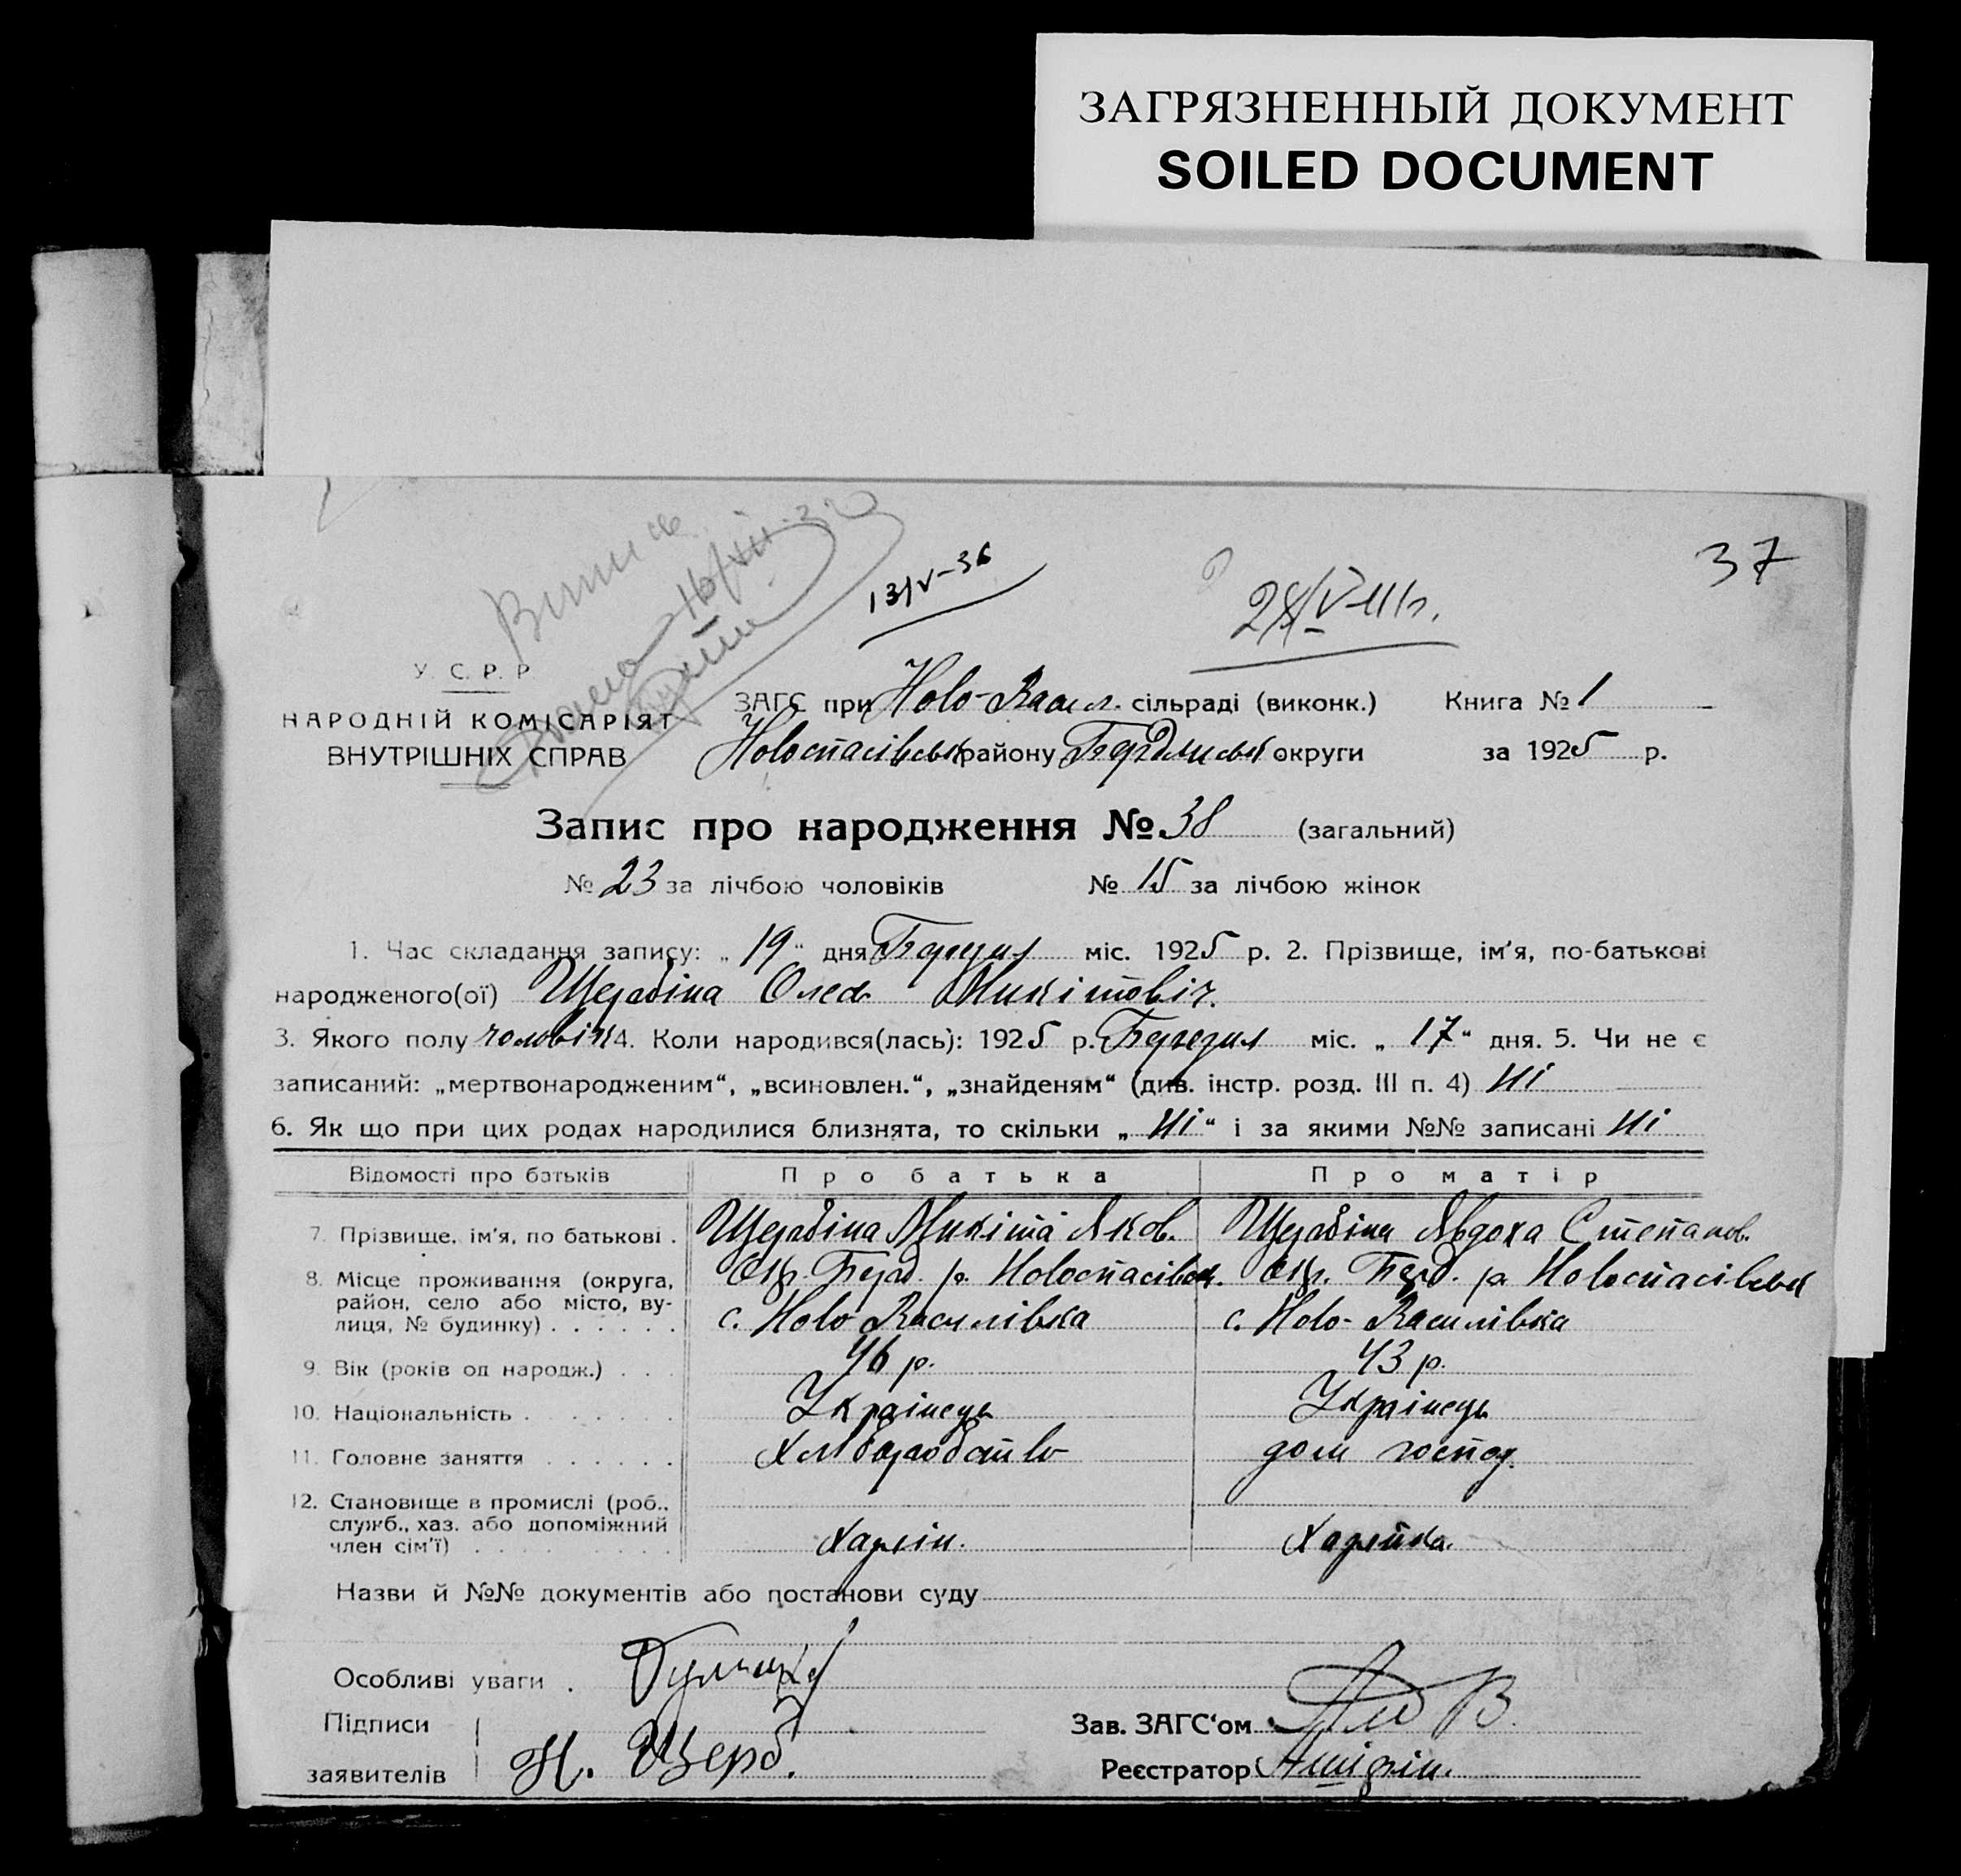 ЗАГРЯЗНЕННЫЙ ДОКУМЕНТ
SOILED DOCUMENT
37
13/V-36
У. С. Р. Р.
НАРОДНІЙ КОМІСАРІЯТ
ВНУТРІШНІХ СПРАВ
ЗАГС при Ново-Васил. сільраді (виконк.) Книга № 1
Новоспасівськ району Бердянськ округи за 1925 р.
Запис про народження № 38 (загальний)
№ 23 за лічбою чоловіків № 15 за лічбою жінок
1. Час складання запису: „19“ дня Березіл міс. 1925 р. 2. Прізвище, ім'я, по-батькові
народженого(ої) Щербіна Олесь Микітовіч.
3. Якого полу чоловік 4. Коли народився(лась): 1925 р. Березил міс. „17“ дня. 5. Чи не є
записаний: „мертвонародженим“, „всиновлен.“, „знайденям“ (див. інстр. розд. III п. 4) Ні
6. Як що при цих родах народилися близнята, то скільки „Ні“ і за якими №№ записані Ні
Відомості про батьків Про батька Про матір
7. Прізвище, ім'я, по батькові . Щербіна Микіта Яков. Щербіна Явдоха Степанов.
8. Місце проживання (округа, район, село або місто, ву-
лиця, № будинку) . . . . . . Окр. Берд. р. Новоспасівськ. Окр. Берд. р. Новоспасівськ
с. Ново Василівка с. Ново-Василівка
9. Вік (років од народж.) . . . 46 р. 43 р.
10. Національність . . . . . . . Українець Українець
11. Головне заняття . . . . . . Хліборобство дом господ.
12. Становище в промислі (роб.,
служб., хаз. або допоміжний
член сім'ї) . . . . . . . . . Хазяін. Хазяйка.
Назви й №№ документів або постанови суду
Особливі уваги .
Підписи Зав. ЗАГС‘ом
заявителів Н. Щерб. Реєстратор